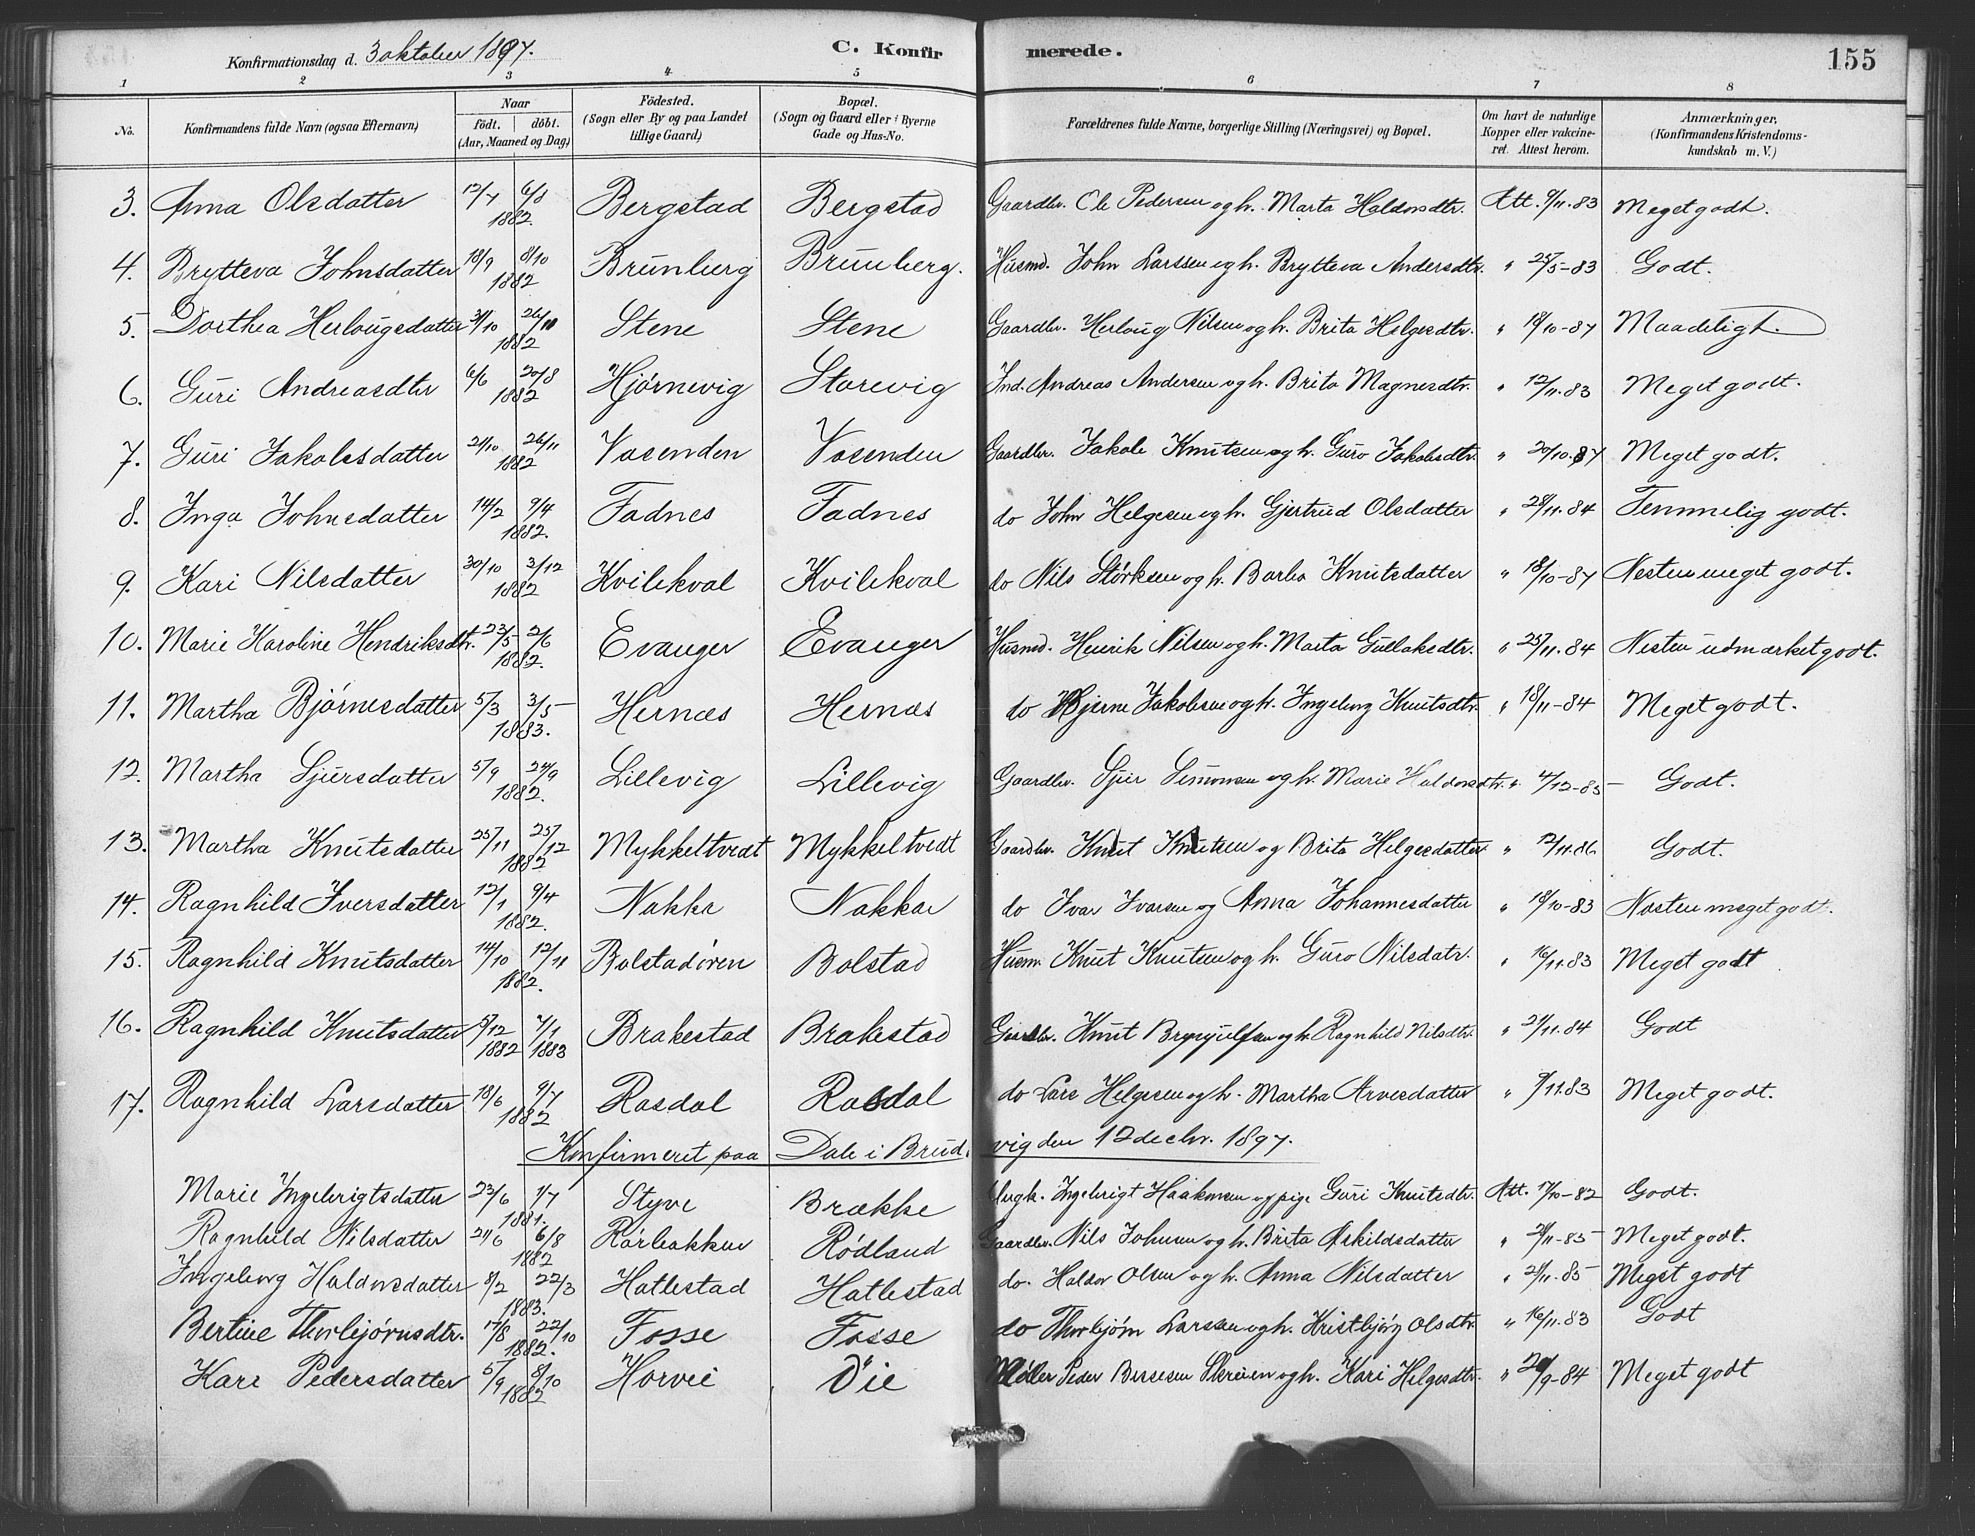 Konfirmationsdag d. 3 oktober 1897. C. Konfirmerede. 155
1 2 3 4 5 6 7 8
No. Konfirmandens fulde Navn (ogsaa Efternavn) Naar födt. döbt. (Aar, Maaned og Dag) Födested. (Sogn eller By og paa Landet tillige Gaard) Bopæl. (Sogn og Gaard eller i Byerne Gade og Hus-No. Forældrenes fulde Navne, borgerlige Stilling (Næringsvei) og Bopæl. Om havt de naturlige Kopper eller vakcineret. Attest herom. Anmærkninger. (Konfirmandens Kristendomskundskab m. V.)
3. Anna Olsdatter 12/7 6/8 1882. Bergstad Bergstad Gaardbr. Ole Pedersen og h. Marta Haldorsdtr. Att. 9/11.83 Meget godt.
4. Brytteva Johnsdatter 18/9 8/10 1882 Brunberg Brunberg. Husmd. John Larssen og h. Brytteva Andersdtr. " 25/5-83 Godt.
5. Dorthea Herlougsdatter 31/10 26/11 1882 Stene Stene Gaardbr. Herloug Nilsen og h. Brita Helgesdtr. " 18/10-87 Maadeligt.
6. Guri Andreasdtr 6/6 20/8 1882 Hjørnevig Storevig Ind. Andreas Andersen og h. Brita Magnesdtr. " 12/11.83 Meget godt.
7. Guri Jakobsdatter 21/10 26/11 1882 Vasenden Vasenden Gaardbr. Jakob Knutsen og h. Guro Jakobsdtr. " 20/10.87 Meget godt.
8. Inga Johnsdatter 14/2 9/4 1882. Fadnes Fadnes do John Helgesen og h. Gjertrud Olsdatter " 28/11.84 Temmelig godt.
9. Kari Nilsdatter 30/10 3/12 1882 Kvilekval Kvilekval do Nils Størksen og h. Barbra Knutsdatter " 18/10-87 Nesten meget godt.
10. Marie Karoline Hendriksdtr. 23/5 2/6 1882. Evanger Evanger Husmd. Henrik Nilsen og h. Marta Gullaksdtr. " 25/11.84 Nesten udmærket godt.
11. Martha Bjørnesdatter 5/3 3/5 1883. Hernæs Hernæs do Bjerne Jakobsen og h. Ingeborg Knutsdtr. " 18/11-84 Meget godt.
12. Martha Sjursdatter 5/9 24/9 1882. Lillevig Lillevig Gaardbr. Sjur Simonsen og h. Marie Haldorsdtr. " 4/12-85 Godt.
13. Martha Knutsdatter 25/11 25/12 1882 Mykkeltvedt Mykkeltvedt Gaardbr. Knut Knutsen og Brita Helgesdatter " 12/11.86 Godt.
14. Ragnhild Iversdatter 12/1 9/4 1882. Nakka Nakkar do Ivar Ivarsen og Anna Johannesdatter " 18/10-83 Næsten meget godt.
15. Ragnhild Knutsdatter 14/10 12/11 1882. Bolstadøren Bolstad Husm. Knut Knutsen og h. Guro Nilsdatr. " 16/11.83 Meget godt
16. Ragnhild Knutsdatter 5/12 1882 7/1 1883 Brakestad Brakestad Gaardbr. Knut Brynjulfsen og h. Ragnhild Nilsdtr. " 21/11.84 Godt
17. Ragnhild Larsdatter 18/6 9/7 1882 Rasdal Rasdal do Lars Helgesen og h. Martha Arvesdatter " 9/11.83 Meget godt.
Konfirmeret paa Dale i Brudvig den 12 decbr. 1897.
Marie Ingebrigtsdatter 23/6 1/7 1881. Styve Brække Ungk. Ingebrigt Haakonsen og pige Guri Knutsdtr. Att. 17/10-82 Godt.
Ragnhild Nilsdatter 21/6 6/8 1882 Rørbakken Rødland Gaardbr. Nils Johnsen og h. Brita Askildsdatter " 21/11-85 Meget godt.
Ingeborg Haldorsdatter 8/2 22/3 1883. Hatlestad Hatlestad do. Haldor Olsen og h. Anna Nilsdatter " 21/11.85 Meget godt
Bertine Thorbjørnsdtr. 17/8 22/10 1882. Fosse Fosse do Thorbjørn Larssen og h. Kristbjørg Olsdtr. " 16/11.83 Godt
Kari Pedersdatter 5/9 8/10 1882 Horvei Øie Møller Peder Bersesen Skreien og h. Kari Helgesdtr. " /9-84 Meget godt